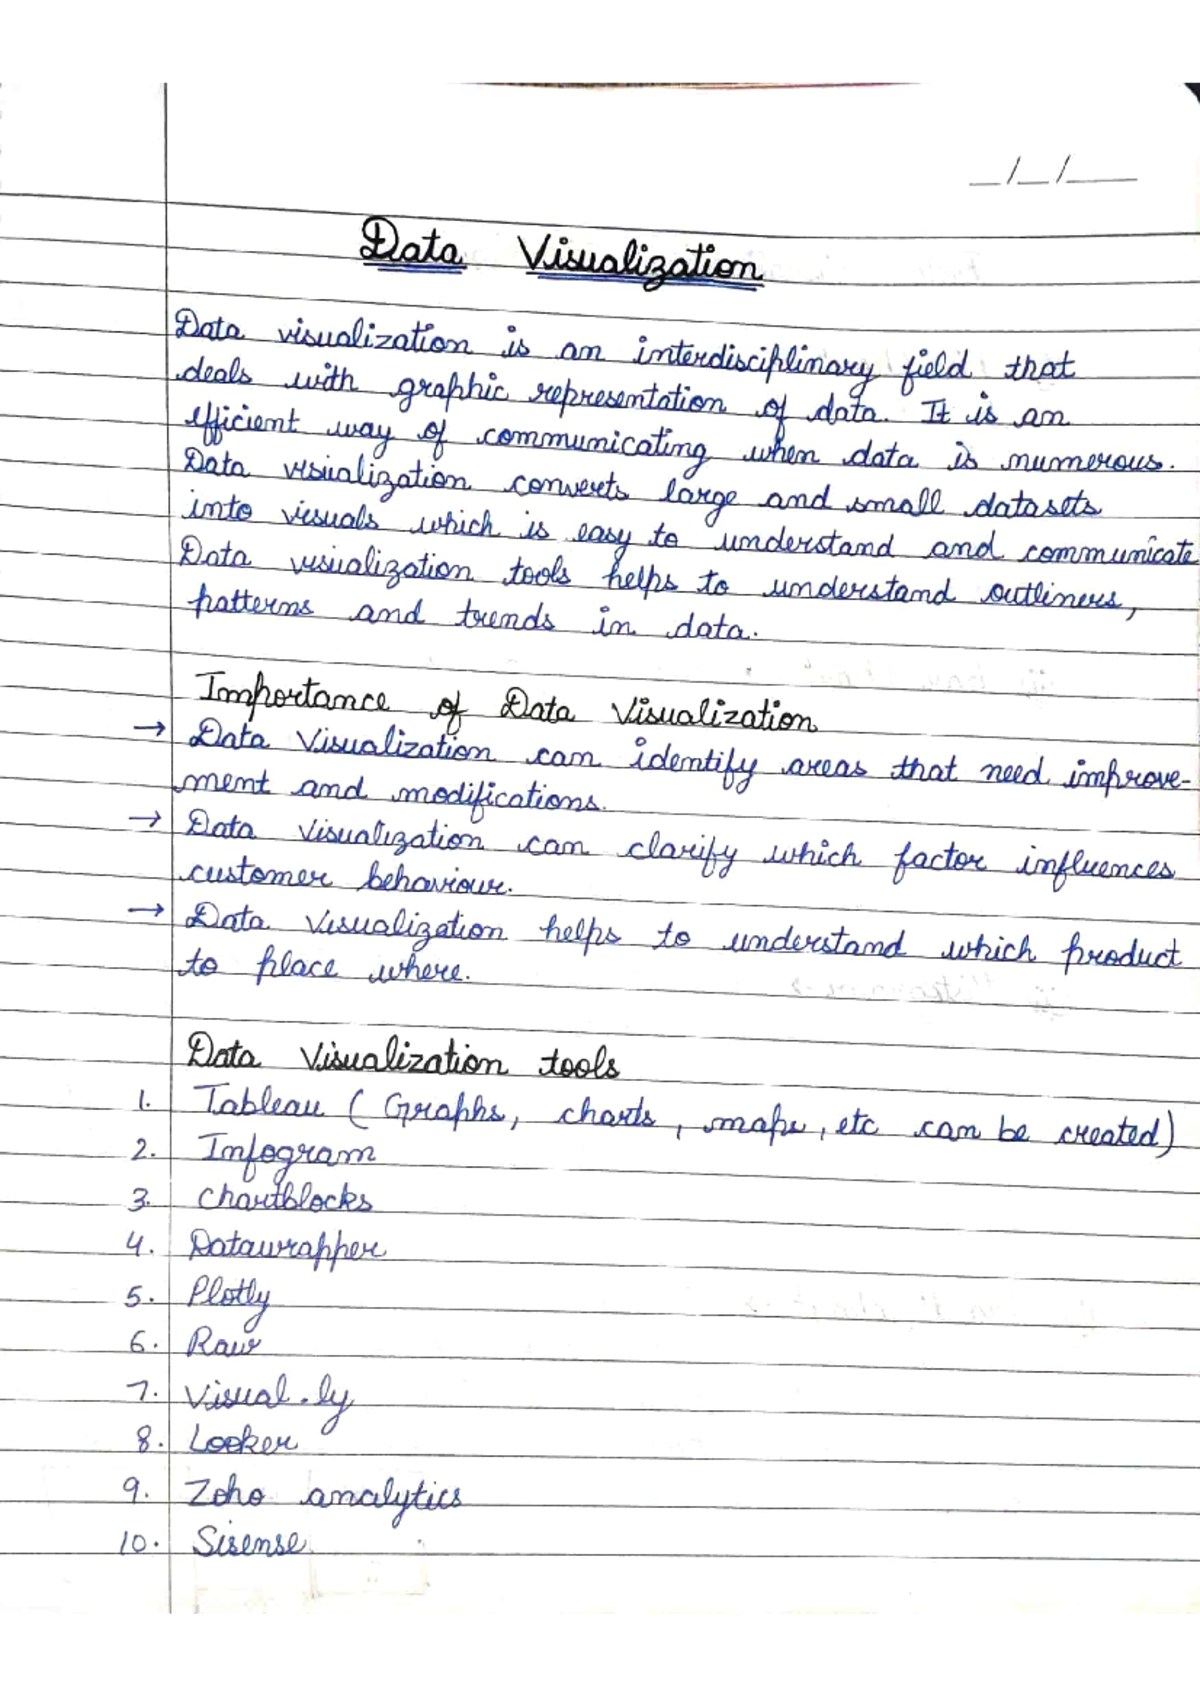 _/_/___
Data Visualization
Data visualization is an interdisciplinary field that
deals with graphic representation of data. It is an
efficient way of communicating when data is numerous.
Data visualization converts large and small datasets
into visuals which is easy to understand and communicate
Data visualization tools helps to understand outliners,
patterns and trends in data.
Importance of Data Visualization
→ Data Visualization can identify areas that need improve-
ment and modifications.
→ Data Visualization can clarify which factor influences
customer behaviour.
→ Data Visualization helps to understand which product
to place where.
Data Visualization tools
1. Tableau (Graphs, charts, maps, etc can be created)
2. Infogram
3. Chartblocks
4. Datawrapper
5. Plotly
6. Raw
7. Visual.ly
8. Looker
9. Zoho analytics
10. Sisense